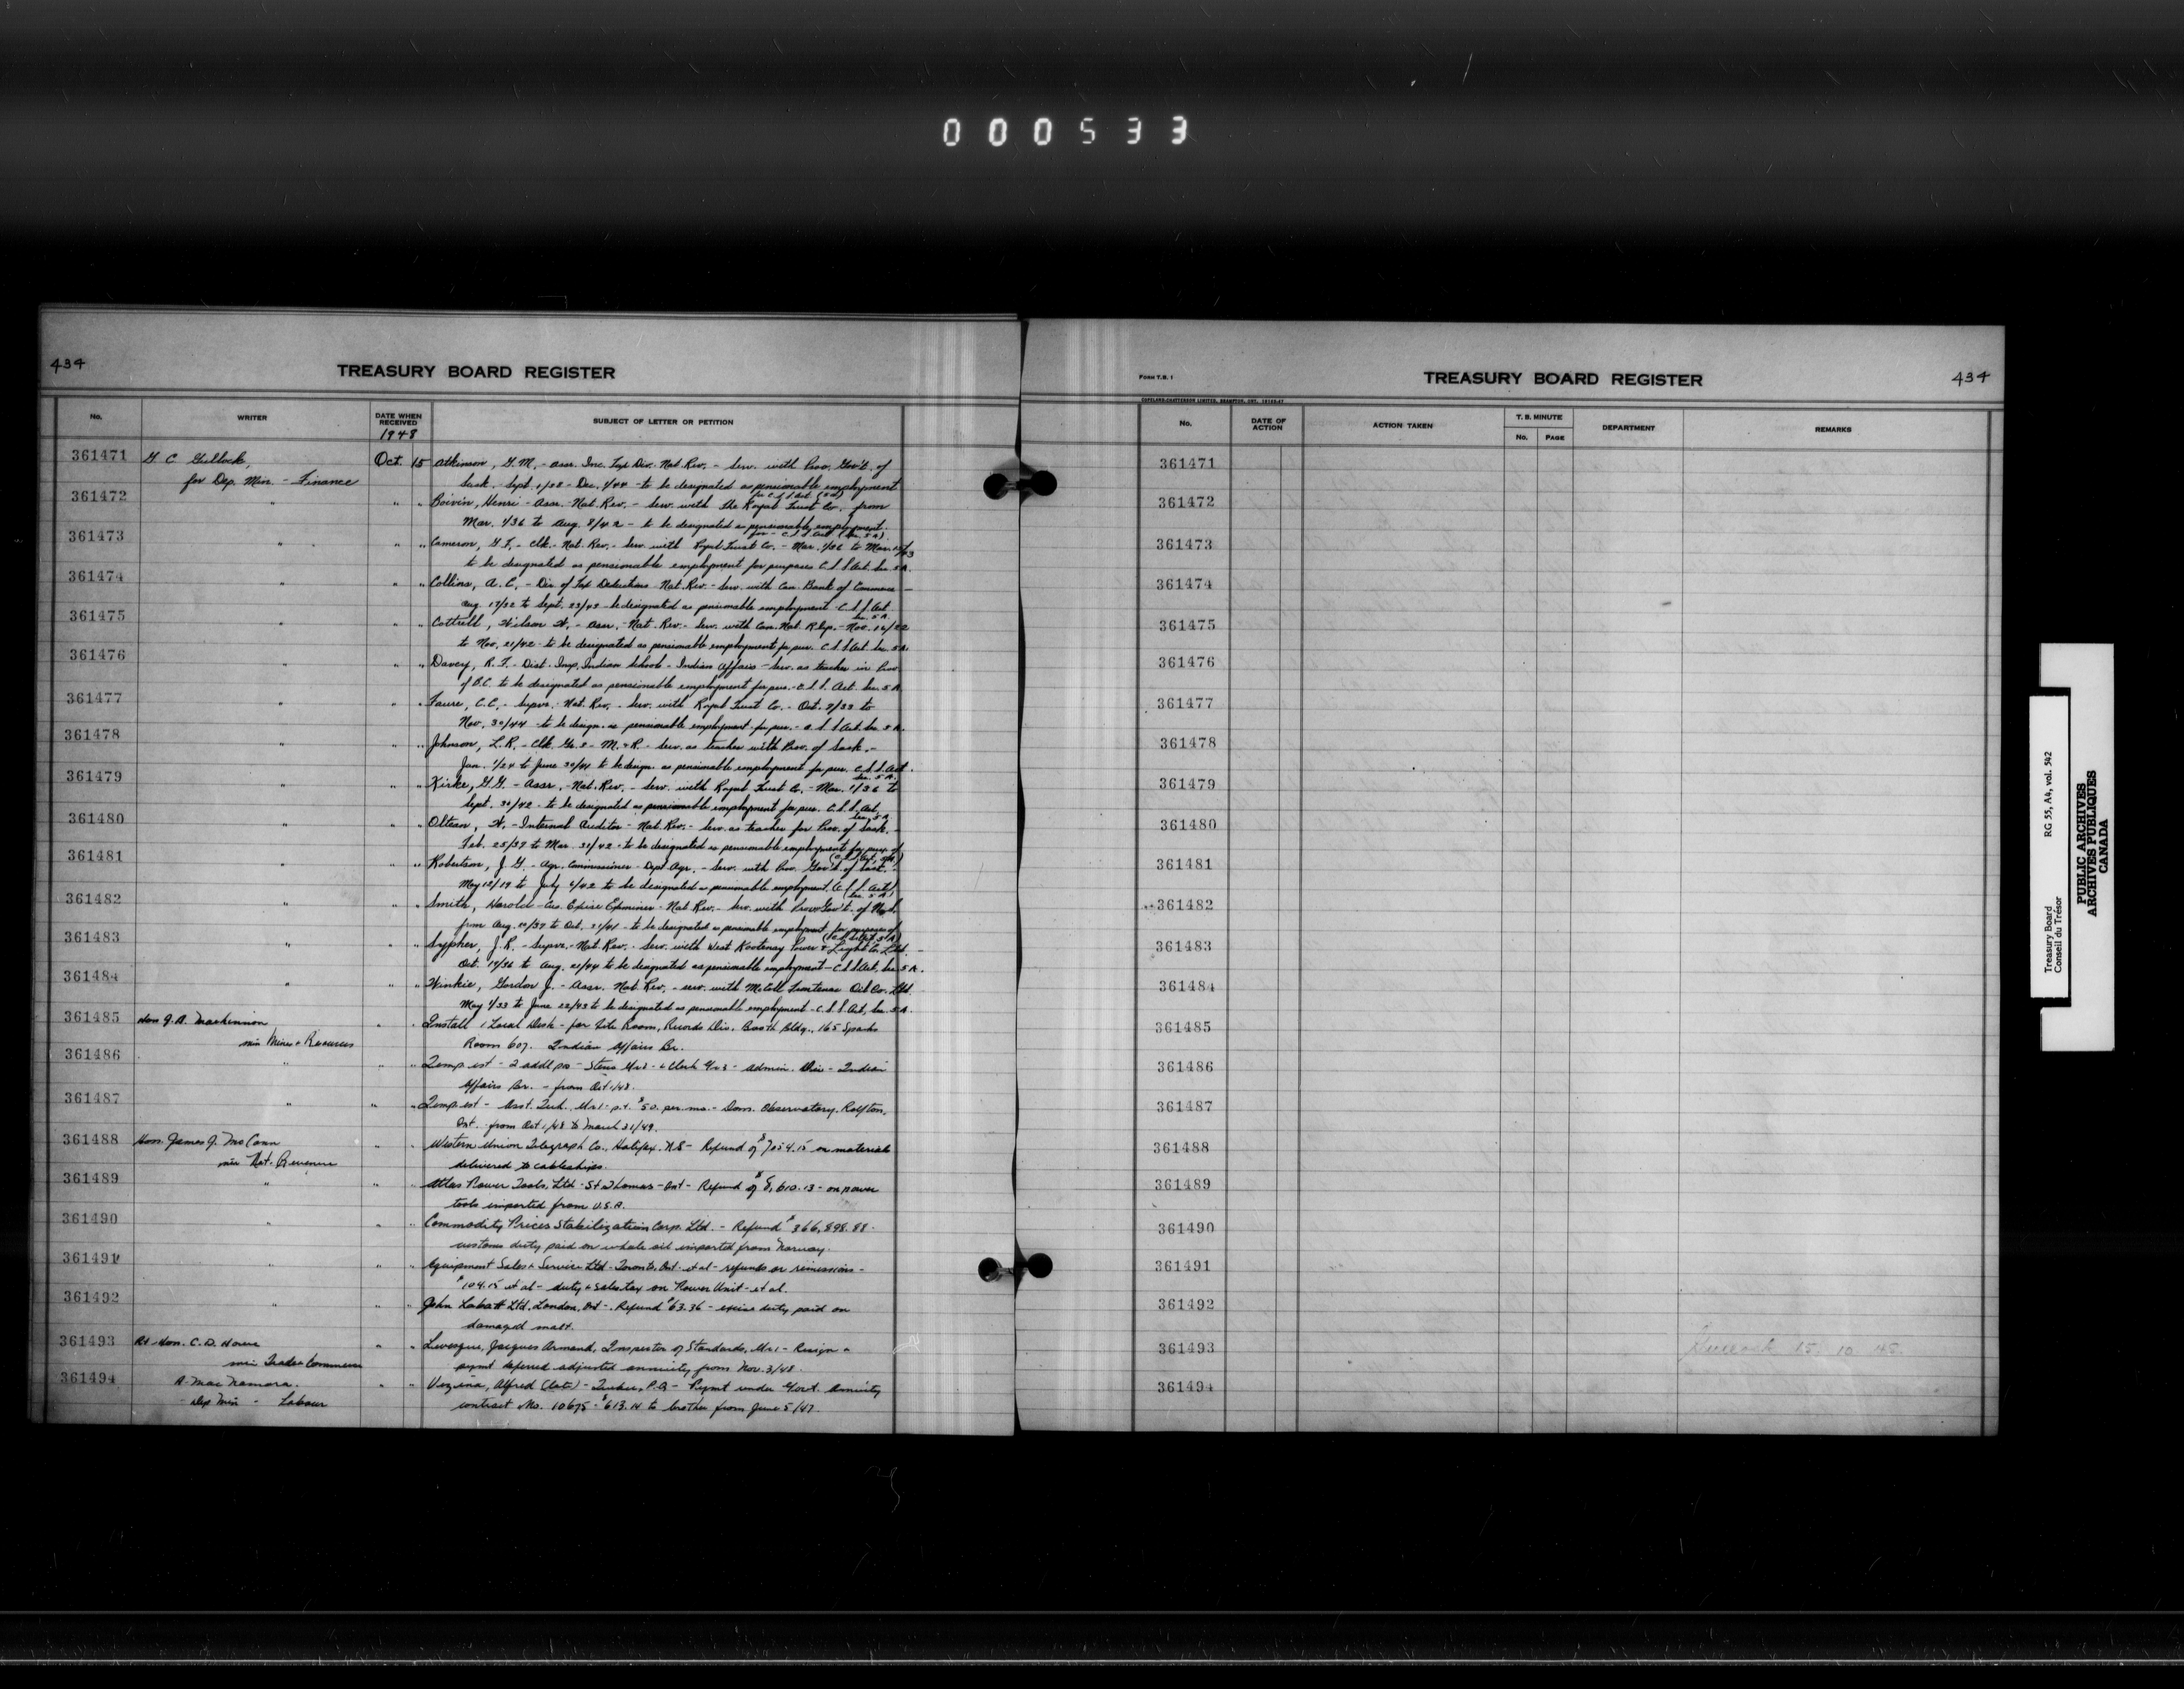 000533
434
TREASURY BOARD REGISTER
No.
WRITER
DATE WHEN RECEIVED
1948
SUBJECT OF LETTER OR PETITION
361471 G C Gullock, Oct. 15 Atkinson, G. M. - Assr. Inc. Tax Div. Nat. Rev. - Serv. with Prov. Gov't. of
for Dep. Min. - Finance Sask. - Sept. 1/38 - Dec. 1/44 - to be designated as pensionable employment
for C.S.S. Act (5A)
361472 " " " Boivin, Henri - Assr. - Nat. Rev. - Serv. with the Royal Trust Co. from
Mar. 1/36 to Aug. 8/42 - to be designated as pensionable employment.
for - C.S.S. Act (Sec. 5A)
361473 " " " Cameron, G. F. - Clk. - Nat. Rev. - Serv. with Royal Trust Co. - Mar. 1/36 to Mar.
to be designated as pensionable employment for purposes C.S.S. Act. Sec. 5A.
361474 " " " Collins, A. C. - Div. of Tax Deductions - Nat. Rev. - Serv. with Can. Bank of Commerce -
Aug. 17/32 to Sept. 23/42 - be designated as pensionable employment - C.S.S. Act
Sec. 5A
361475 " " " Cottrell, Wilson W. - Assr. - Nat. Rev. - Serv. with Can. Nat. Rlys. - Nov. 16/22
to Nov. 21/42 - to be designated as pensionable employment for pur. C.S.S. Act. Sec. 5A.
361476 " " " Davey, R. F. - Dist. Insp. Indian Schools - Indian Affairs - Serv. as teacher in Prov.
of B.C. to be designated as pensionable employment for pur. - C.S.S. Act. Sec. 5A
361477 " " " Faure, C. C. - Supvr. - Nat. Rev. - Serv. with Royal Trust Co. - Oct. 9/33 to
Nov. 30/44 - to be design. as pensionable employment for pur. - C.S.S. Act. Sec. 5A.
361478 " " " Johnson, L. R. - Clk. Gr. 2 - M. & R. - Serv. as teacher with Prov. of Sask. -
Jan. 1/24 to June 30/41 to be design. as pensionable employment for pur. C.S.S. Act.
Sec. 5A.
361479 " " " Kirke, G. G. - Assr. - Nat. Rev. - Serv. with Royal Trust Co. - Mar. 1/36 to
Sept. 30/42 - to be designated as pensionable employment for pur. C.S.S. Act,
Sec. 5A
361480 " " " Oltean, W. - Internal Auditor - Nat. Rev. - Serv. as teacher for Prov. of Sask. -
Feb. 25/37 to Mar. 31/42 - to be designated as pensionable employment for purp. of
(C.S.S. Act, 5A)
361481 " " " Robertson, J. G. - Agr. Commissioner - Dept Agr. - Serv. with Prov. Gov't. of Sask. -
May 12/19 to July 6/42 to be designated as pensionable employment. (C.S.S. Act
Sec. 5A)
361482 " " " Smith, Harold - Cus. Excise Examiner - Nat Rev. - Serv. with Prov Gov't. of
from Aug. 20/37 to Oct. 31/41 - to be designated as pensionable employment for purposes of
(C.S.S. Act 5A)
361483 " " " Sypher, J. R. - Supvr. - Nat. Rev. - Serv. with West Kootenay Power & Light Co. Ltd. -
Oct. 19/36 to Aug. 21/44 to be designated as pensionable employment - C.S.S. Act, Sec. 5A.
361484 " " " Winkie, Gordon J. - Assr. Nat. Rev. - serv. with McColl Frontenac Oil Co. Ltd.
May 1/33 to June 22/43 to be designated as pensionable employment - C.S.S. Act, Sec. 5A.
361485 Hon J. A. MacKinnon " " Install 1 Local Desk - for File Room, Records Div. Booth Bldg., 165 Sparks
min Mines & Resources Room 607. Indian Affairs Br.
361486 " " " Temp. est - 2 addl pos - Steno Gr 2 - & Clerk Gr 3 - Admin. Div - Indian
Affairs Br. - from Oct 1/48.
361487 " " " Temp. est - Asst. Tech. Gr 1 - p.t. $50. per. mo. - Dom. Observatory, Rolfton,
Ont. from Oct 1/48 to March 31/49.
361488 Hon. James J. McCann " " Western Union Telegraph Co., Halifax, N.S - Refund of $7054.15 on materials
min Nat. Revenue delivered to cableships.
361489 " " " Atlas Power Tools, Ltd - St Thomas - Ont - Refund of $8,610.13 - on power
tools imported from U.S.A.
361490 " " " Commodity Prices Stabilization Corp. Ltd. - Refund $366,898.88.
customs duty paid on whale oil imported from Norway.
361491 " " " Equipment Sales & Service Ltd - Toronto, Ont. et al - refunds or remissions -
$104.15 et al - duty & sales tax on Power Unit - et al.
361492 " " " John Labatt Ltd. London, Ont - Refund $63.36 - excise duty paid on
damaged malt.
361493 Rt Hon. C. D. Howe " " Levesque, Jacques Armand, Inspector of Standards, Gr 1 - Resign &
min Trade & Commerce paymt deferred adjusted annuity from Nov. 3/48.
361494 A. MacNamara. " " Vezina, Alfred (late) - Quebec, P.Q. - Paymt under Govt. Annuity
Dep Min - Labour contract No. 10675 - $613.14 to brother from June 5/47.
FORM T.B. 1
TREASURY BOARD REGISTER
434
COPELAND-CHATTERSON LIMITED, BRAMPTON, ONT.
No.
DATE OF ACTION
ACTION TAKEN
T. B. MINUTE
No.
PAGE
DEPARTMENT
REMARKS
361471
361472
361473
361474
361475
361476
361477
361478
361479
361480
361481
361482
361483
361484
361485
361486
361487
361488
361489
361490
361491
361492
361493 15. 10. 48.
361494
Treasury Board RG 55, A4, vol. 542
Conseil du Trésor
PUBLIC ARCHIVES
ARCHIVES PUBLIQUES
CANADA